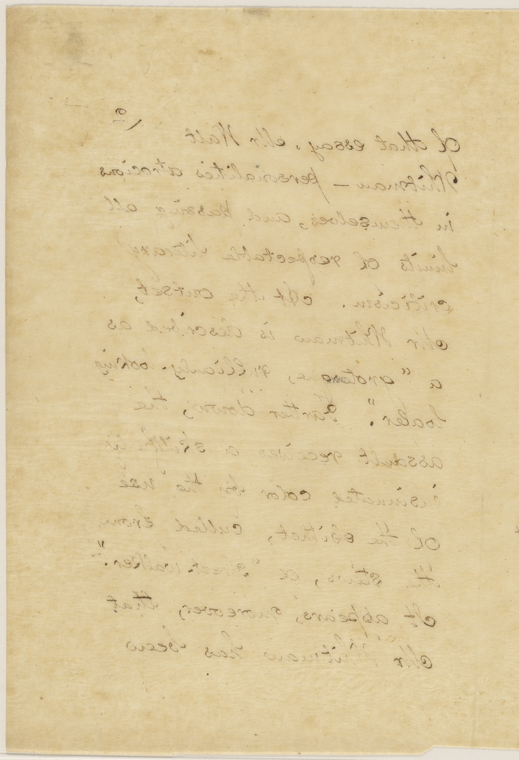 of that essay, Mr Walt
Whitman — personalities atrocious
in themselves, and passing all
limits of respectable literary
criticism. At the outset,
Mr Whitman is described as
a "grotesque, rowdy-looking
loafer." Farther down, the
assault receives a skillful
insinuated color by the use
of the epithet, culled from
the slums, of "street walker."
It appears, moreover, that
Mr Whitman has been